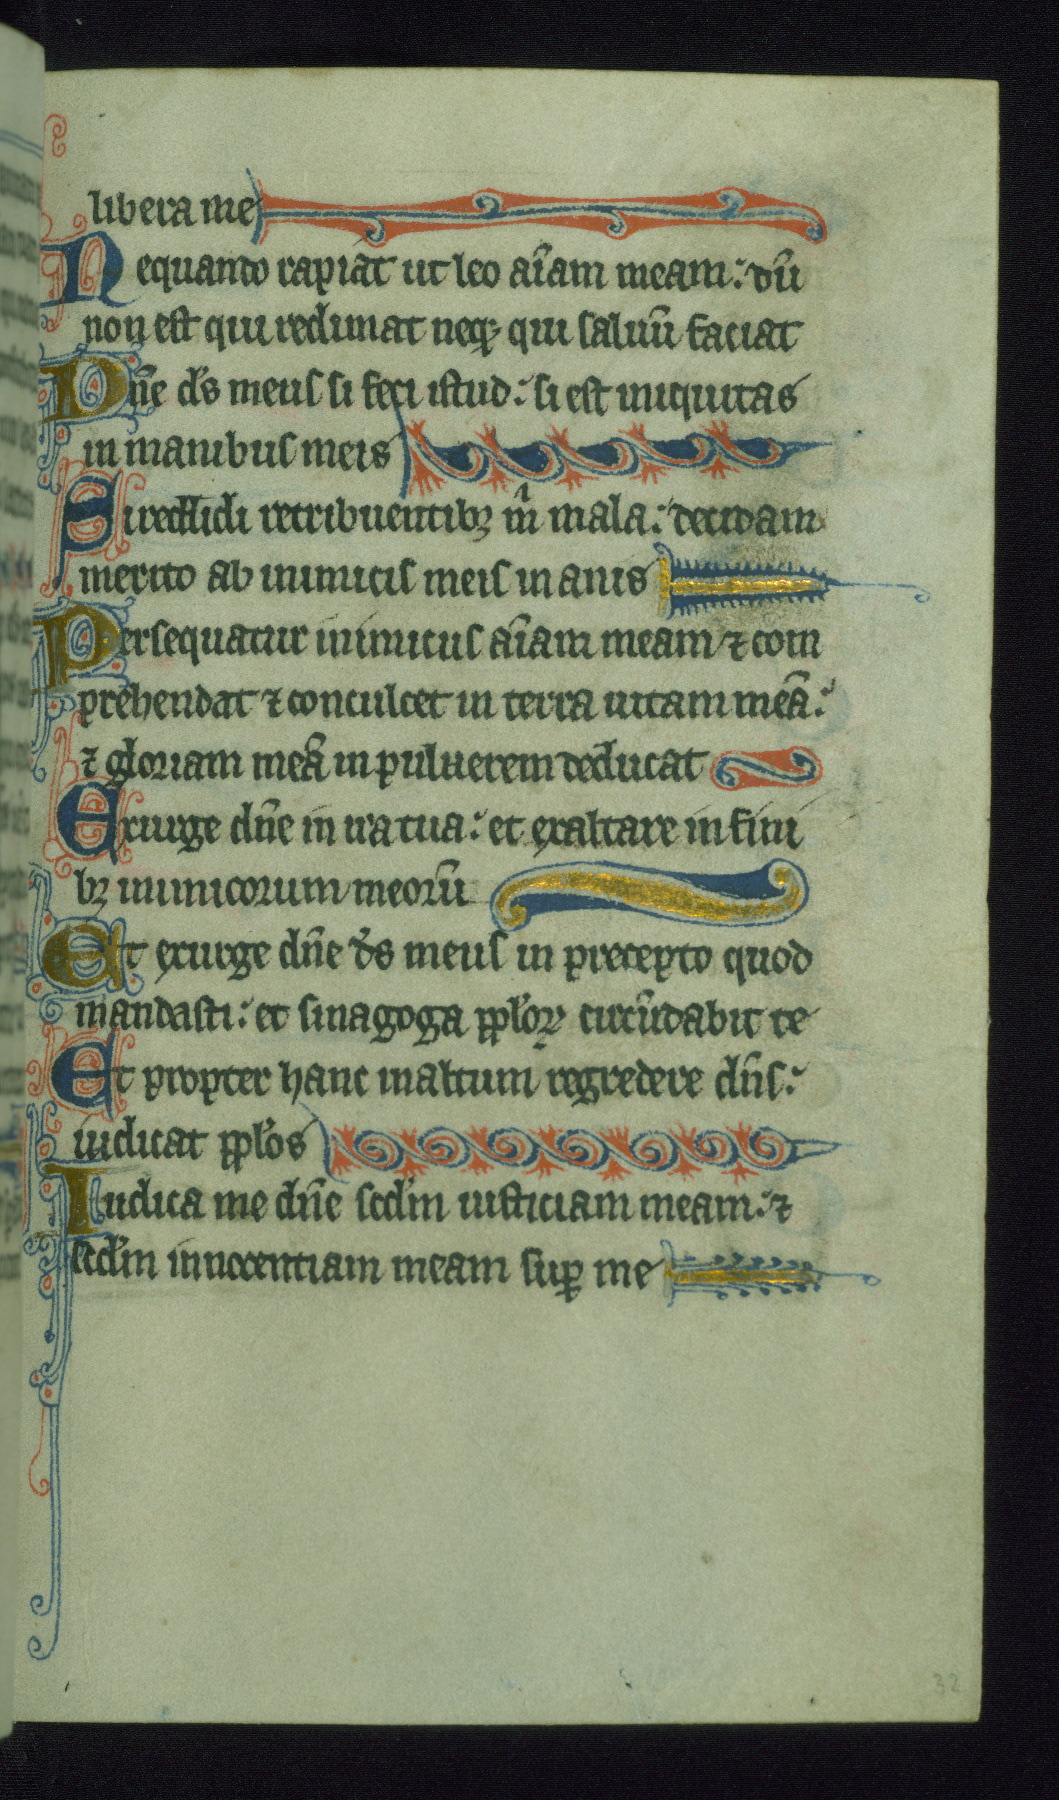 libera me
Nequando rapiat ut leo aīam meam: dū
non est qui redimat neq; qui saluū faciat
Dn̄e ds̄ meus si feci istud: si est iniquitas
in manibus meis
Si reddidi retribuentibꝫ m mala: decidam
merito ab inimicis meis inanis
Persequatur inimicus aīam meam ⁊ com
prehendat ⁊ conculcet in terra uitam meā:
⁊ gloriam meā in puluerem deducat
Exurge dn̄e in ira tua: et exaltare in fini
bꝫ inimicorum meorū
Et exurge dn̄e ds̄ meus in precepto quod
mandasti: et sinagoga pp̄lоꝝ circūdabit te
Et propter hanc in altum regredere dn̄s:
iudicat pp̄los
Iudica me dn̄e scd̄m iusticiam meam: ⁊
scd̄m innocentiam meam suꝑ me
32